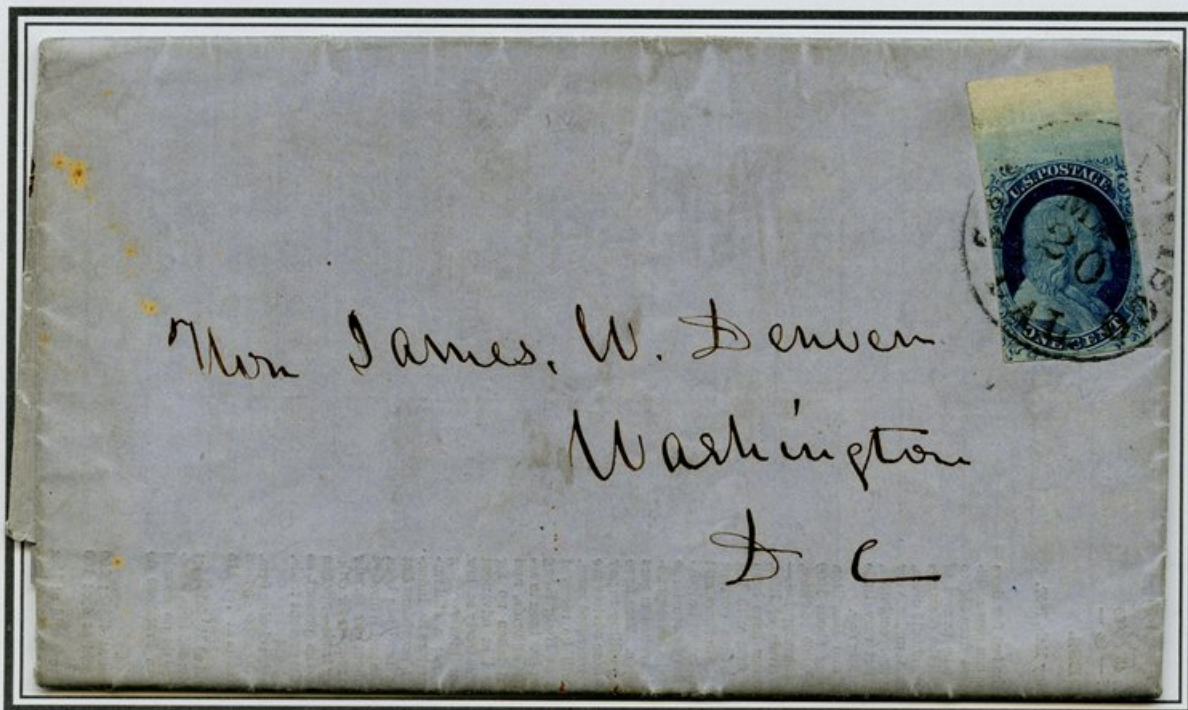 U.S.POSTAGE
20
ONE CENT
Hon James. W. Denver
Washington
D C